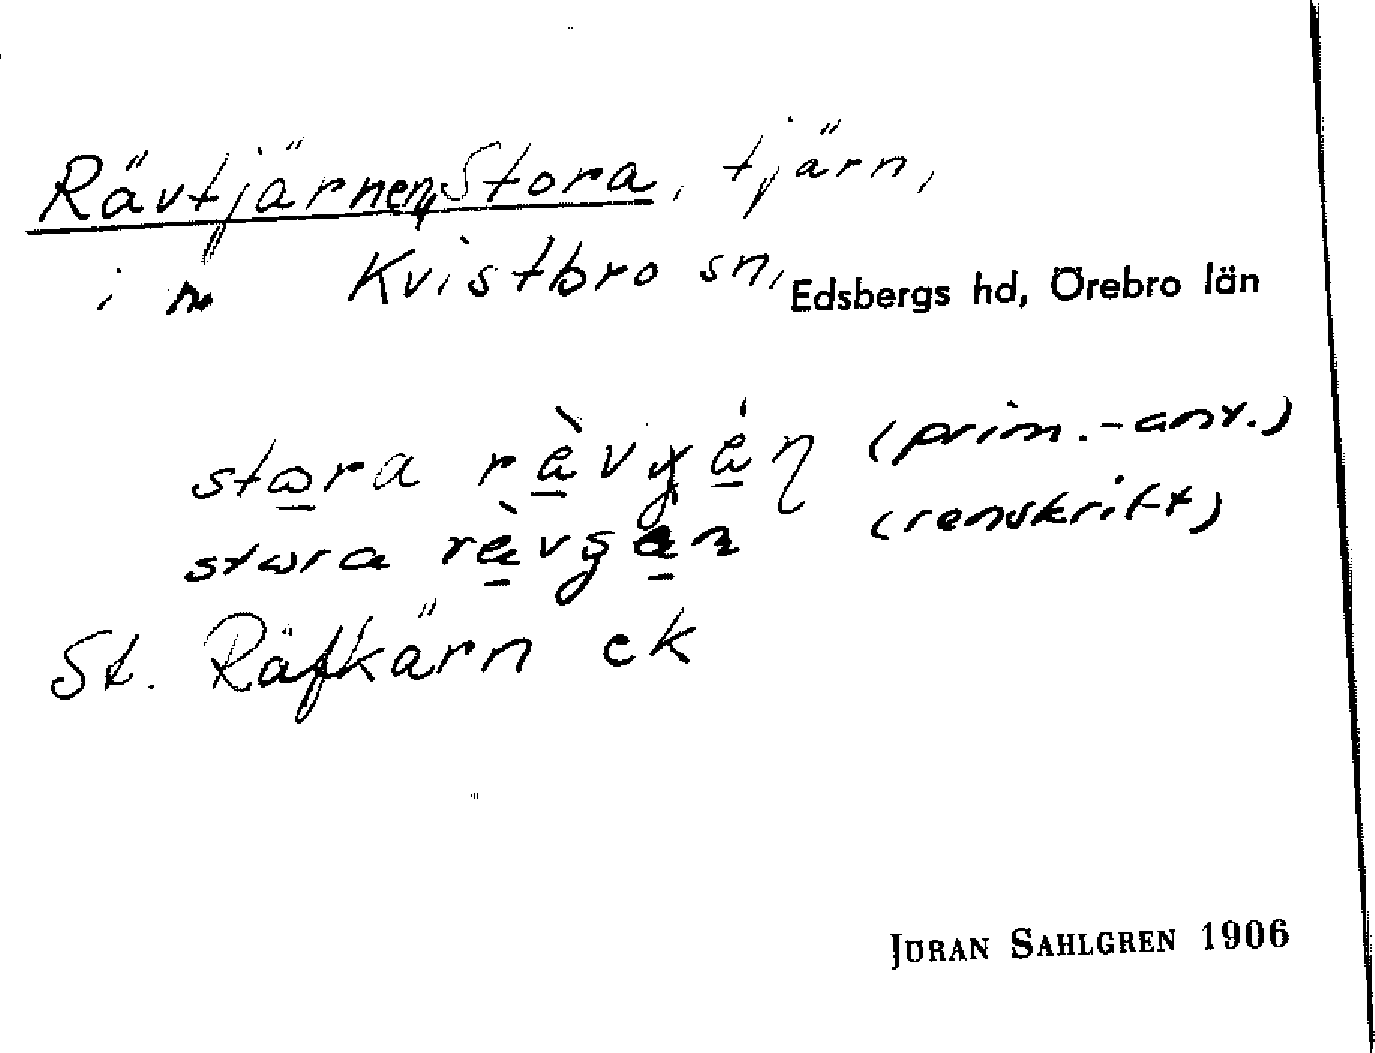 Rävtjärnen, Stora, tjärn,
i Kvistbro sn, Edsbergs hd, Örebro län
stora (prim.-anr.)
stora (renskrift)
St. Räfkärn ek
JÖRAN SAHLGREN 1906